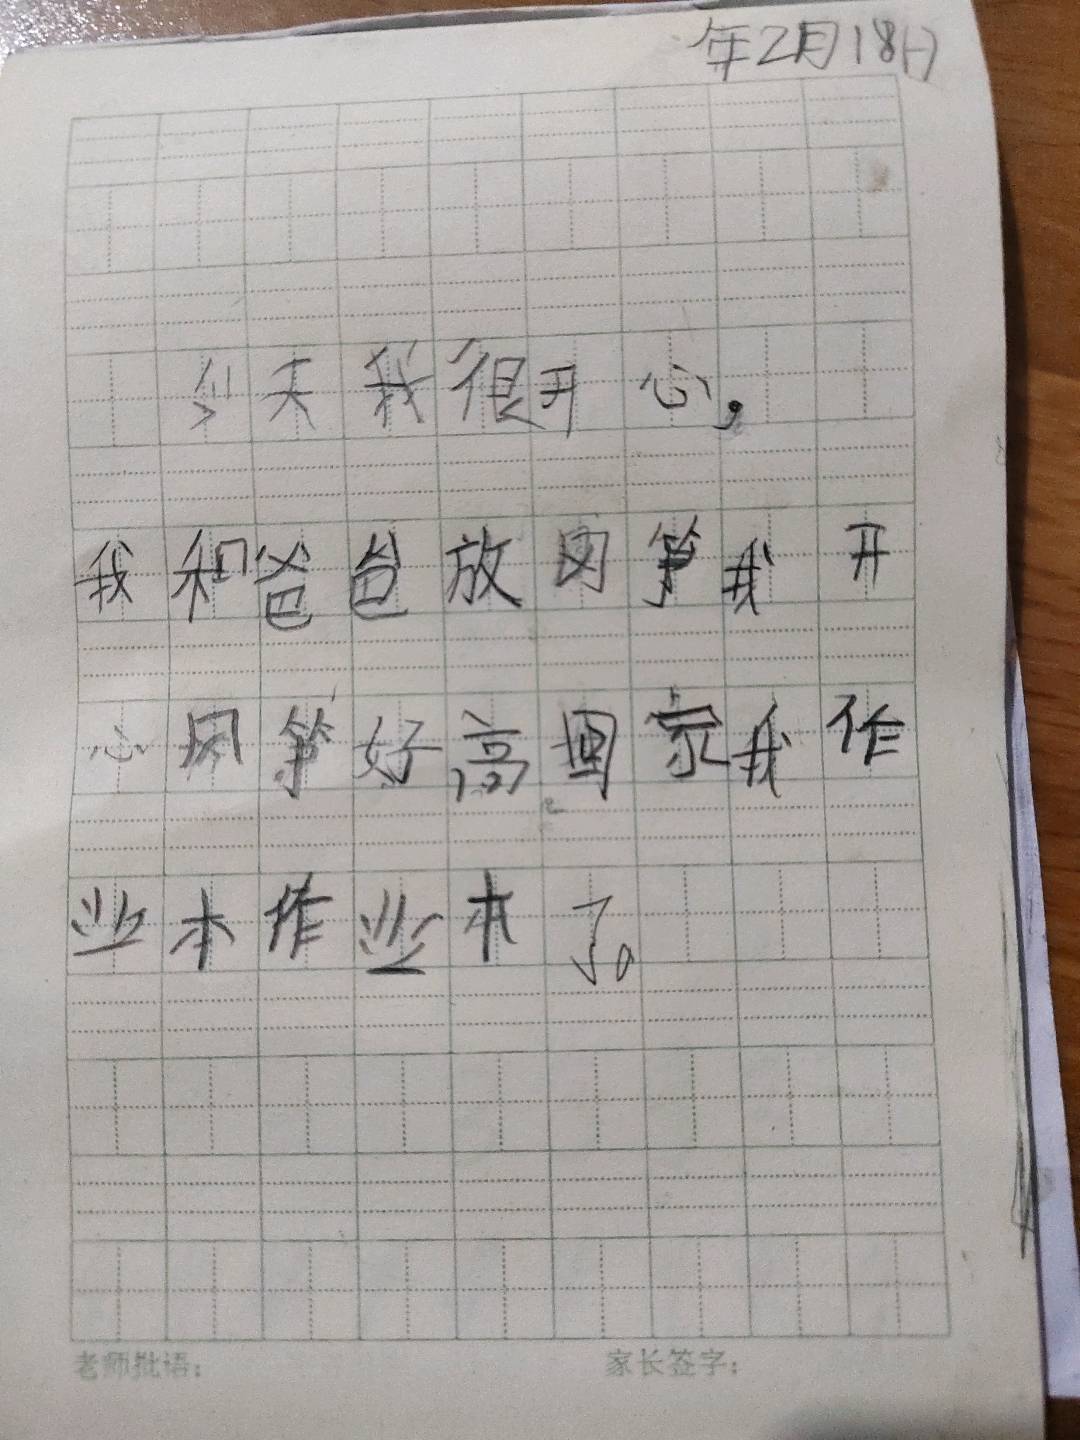 年2月18日
今天我很开心,
我和爸爸放风筝我开
心风筝好高回家我作
业本作业本了。
老师批语:
家长签字: